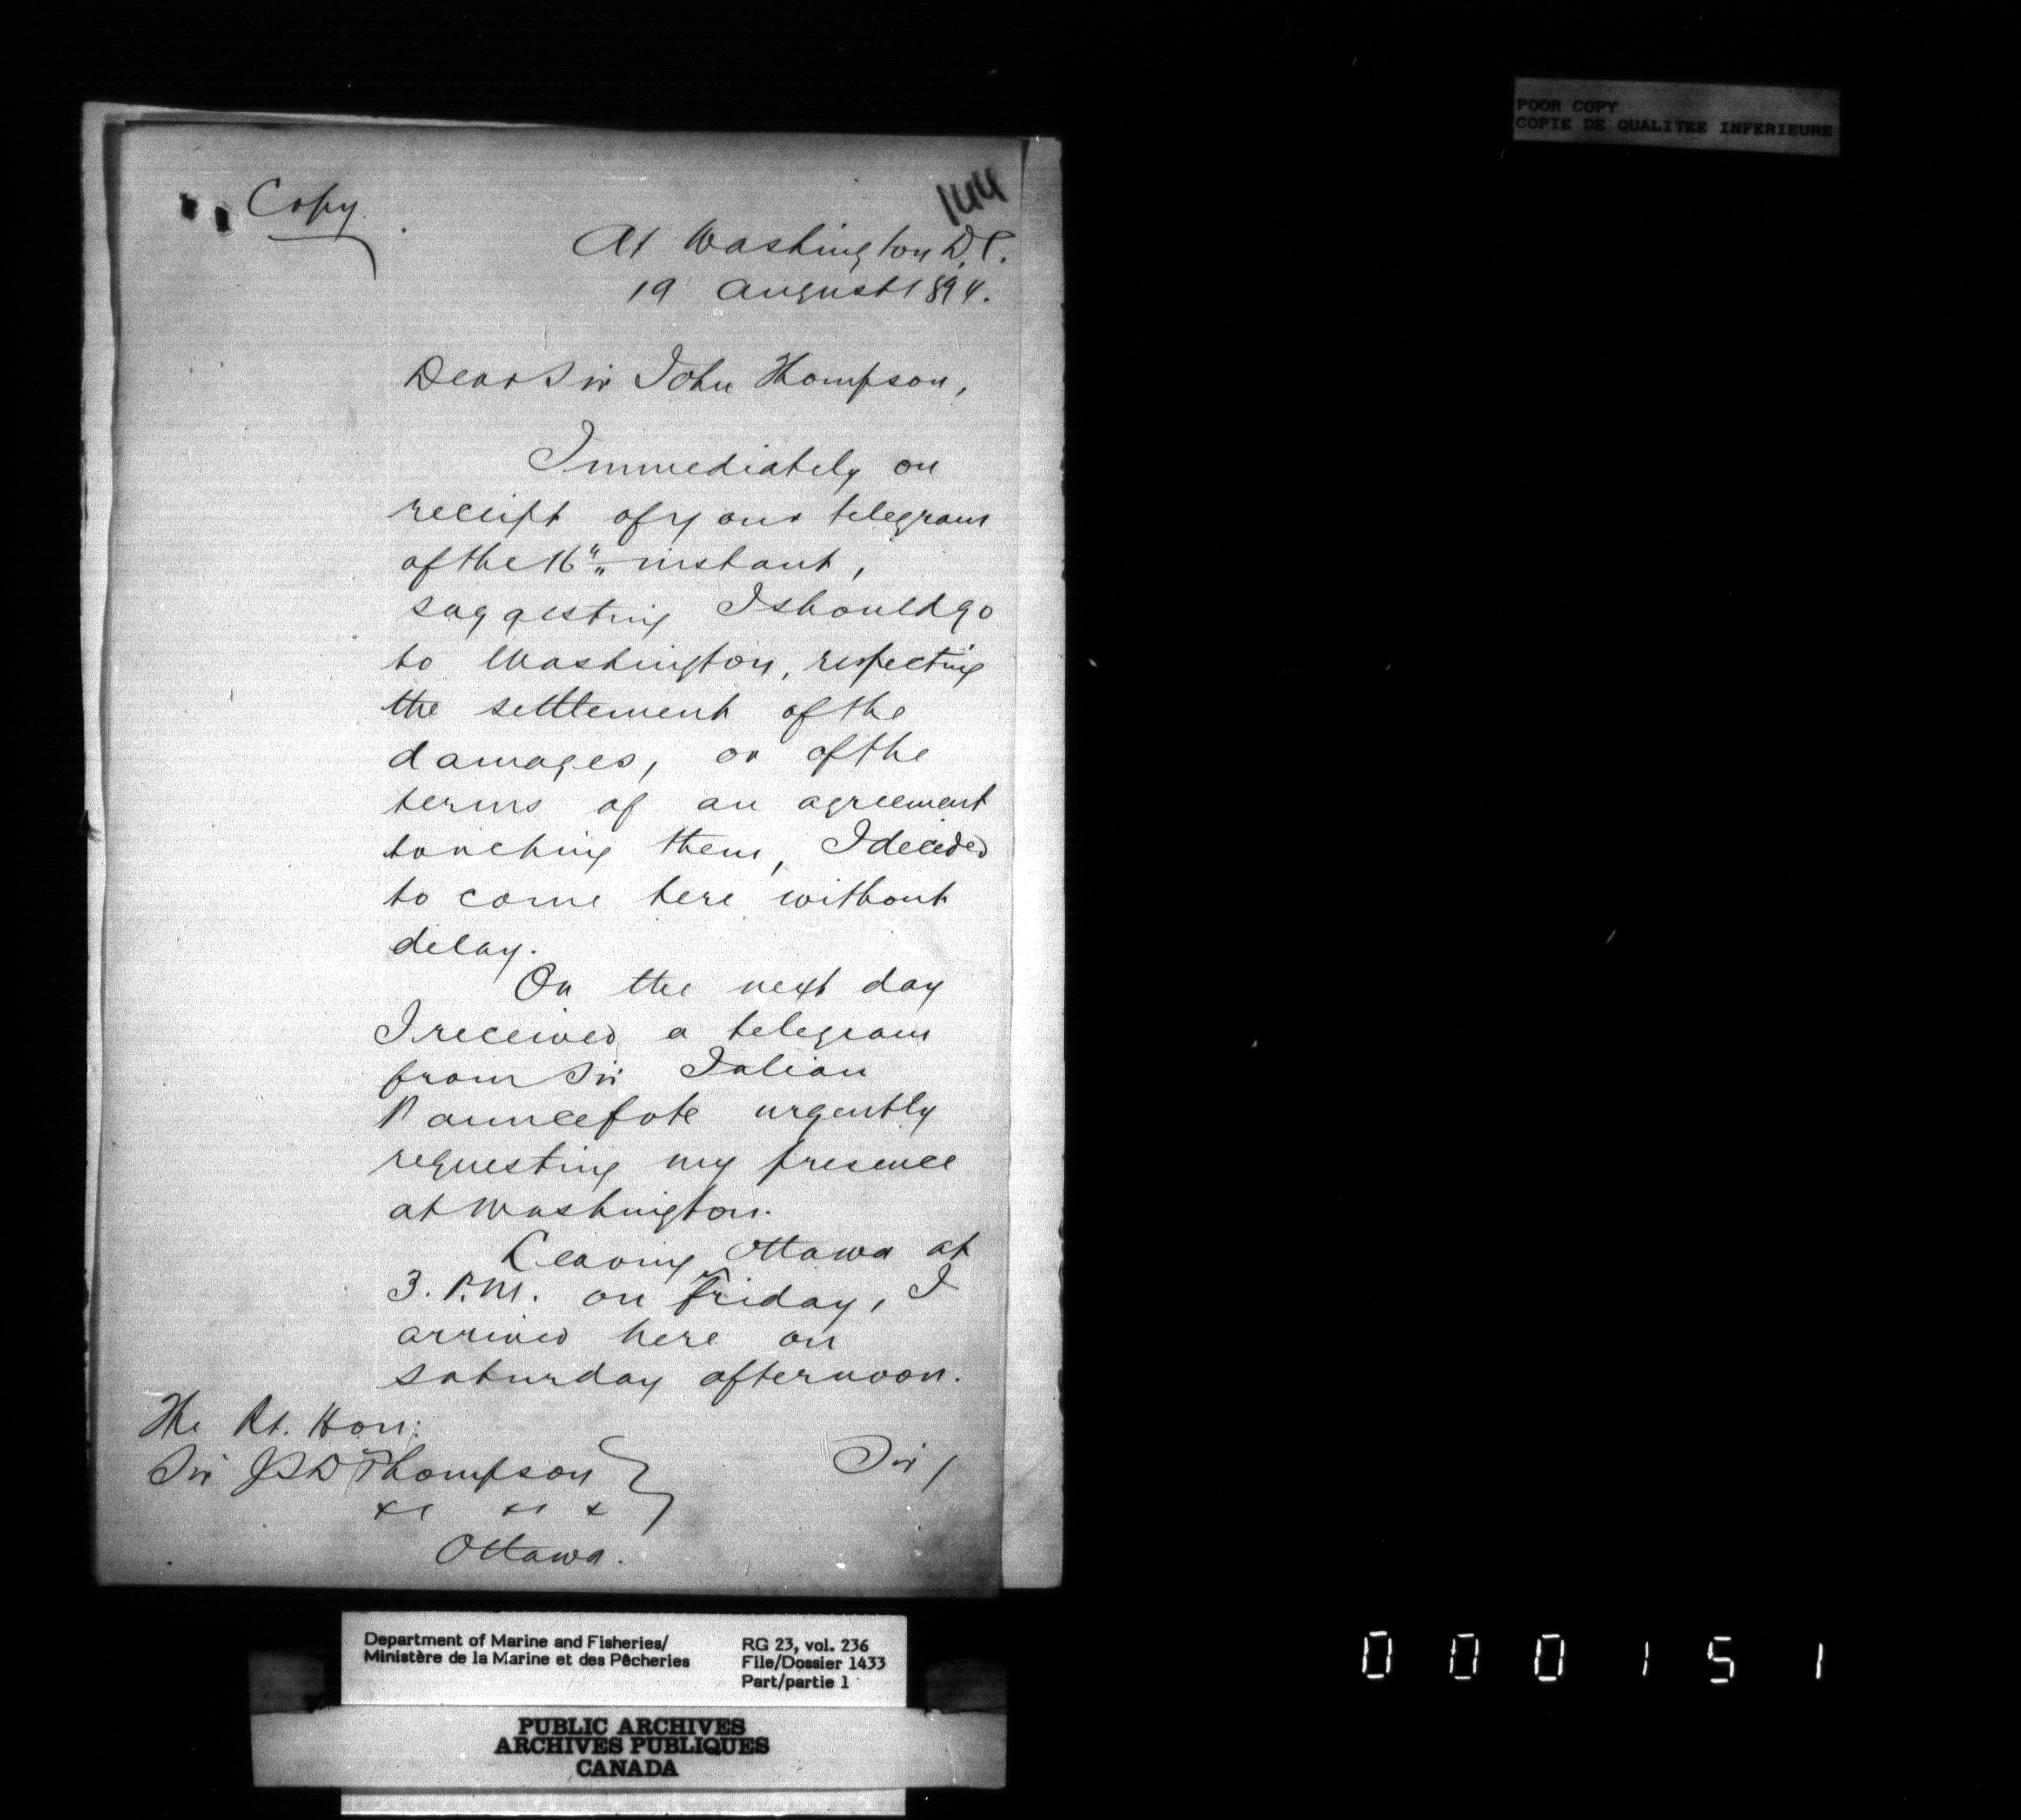 POOR COPY
COPIE DE QUALITEE INFERIEURE
Copy.
144
At Washington D.C.
19 August 1894.
Dear Sir John Thompson,
Immediately on
receipt of your telegram
of the 16" instant,
suggesting I should go
to Washington, respecting
the settlement of the
damages, or of the
terms of an agreement
touching them, I decided
to come here without
delay.
On the next day
I received a telegram
from Sir Julian
Pauncefote urgently
requesting my presence
at Washington.
Leaving Ottawa at
3. P.M. on Friday, I
arrived here on
saturday afternoon.
The Rt. Hon:
Sir JSD Thompson
&c &c &
Ottawa.
Sir /
Department of Marine and Fisheries/
Ministère de la Marine et des Pêcheries
RG 23, vol. 236
File/Dossier 1433
Part/partie 1
PUBLIC ARCHIVES
ARCHIVES PUBLIQUES
CANADA
000151